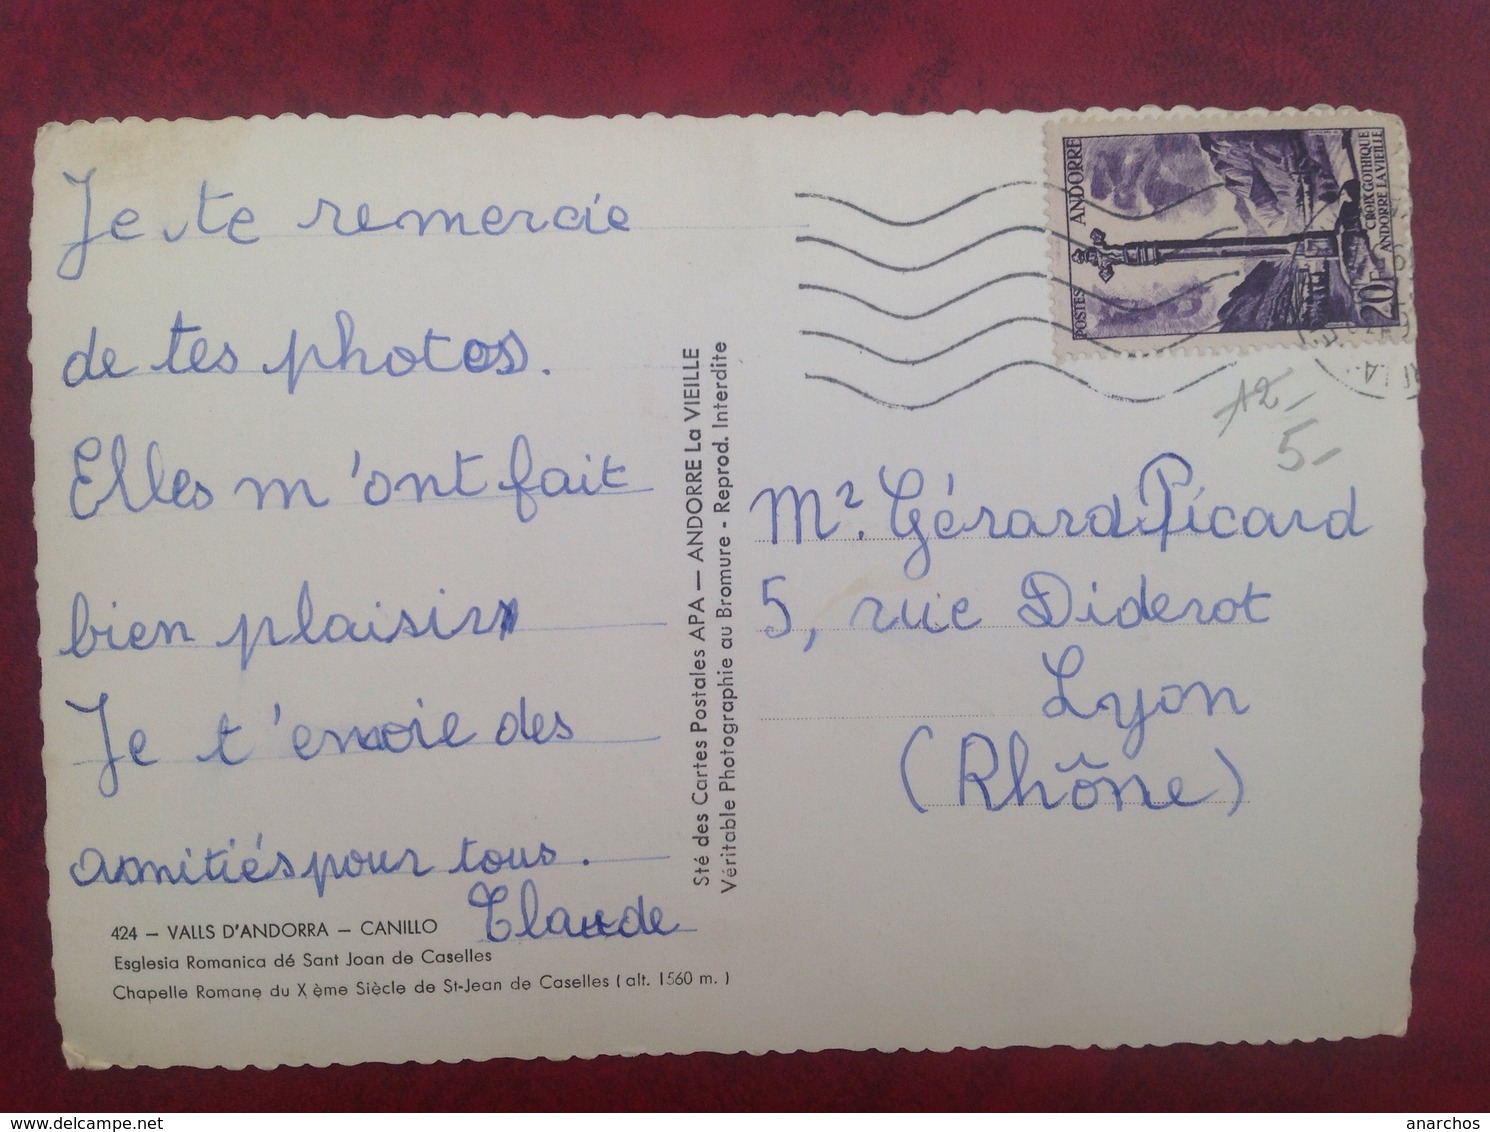 Je te remercie
de tes photos.
Elles m'ont fait
bien plaisir
Je t'envoie des
amitiés pour tous.
Claude
424 – VALLS D'ANDORRA – CANILLO
Esglesia Romanica dé Sant Joan de Caselles
Chapelle Romane du X ème Siècle de St-Jean de Caselles ( alt. 1560 m. )
Sté des Cartes Postales APA – ANDORRE La VIEILLE
Véritable Photographie au Bromure - Reprod. Interdite
ANDORRE
POSTES
CROIX GOTHIQUE
ANDORRE LA VIEILLE
20F
A2-
5-
Mr. Gérard Picard
5, rue Diderot
Lyon
(Rhône)
www.delcampe.net
anarchos